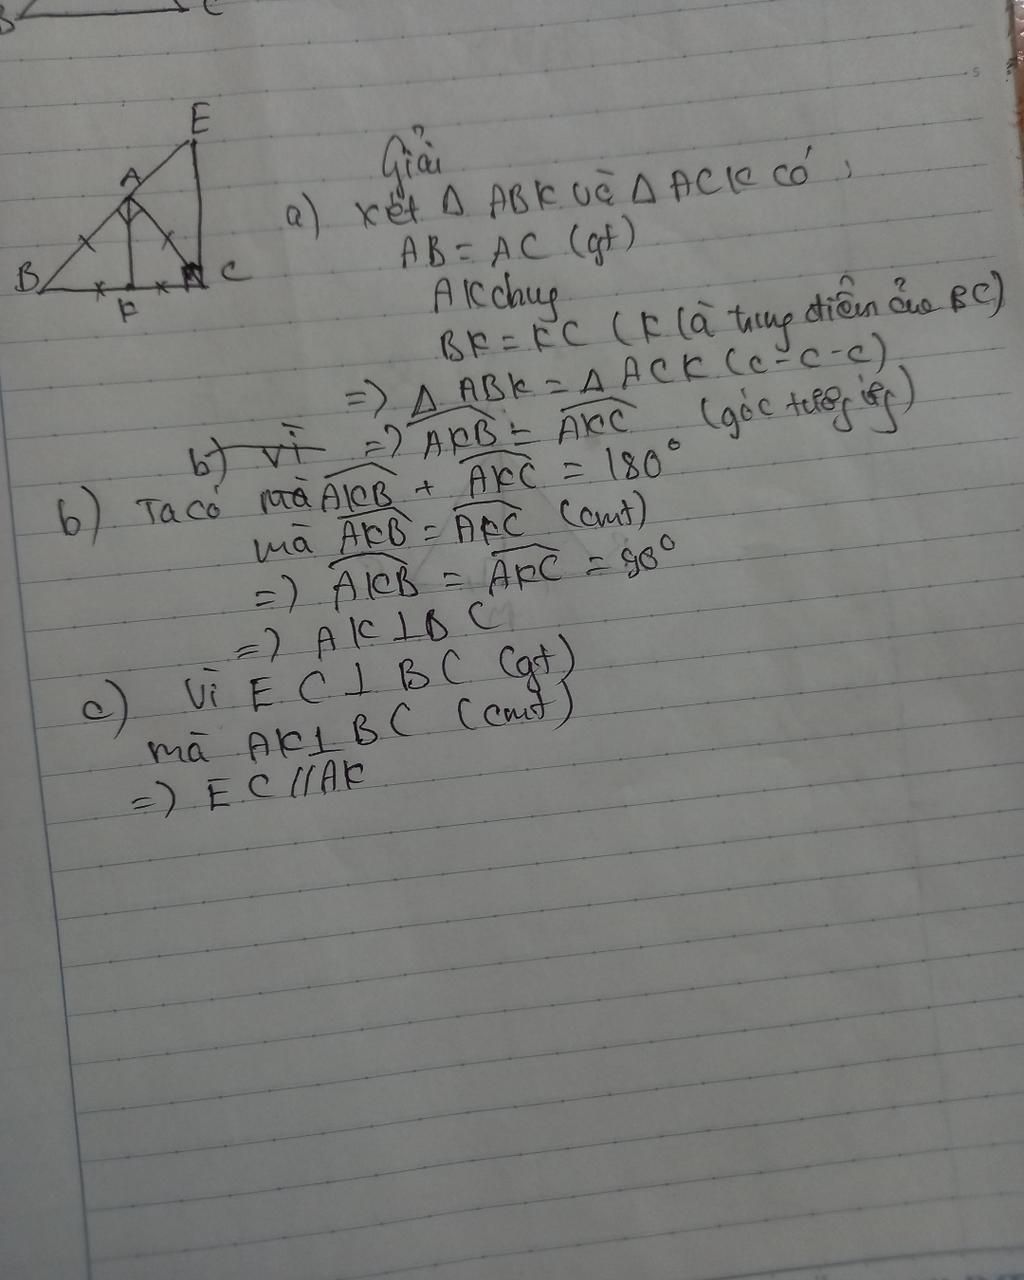 B C
E
A
B
C
K
Giải
a) Xét Δ ABK và Δ ACK có:
AB = AC (gt)
AK chung
BK = KC (K là trung điểm của BC)
=> Δ ABK = Δ ACK (c-c-c)
b) Vì => \widehat{AKB} = \widehat{AKC} (góc tương ứng)
b) Ta có mà \widehat{AKB} + \widehat{AKC} = 180°
mà \widehat{AKB} = \widehat{AKC} (cmt)
=> \widehat{AKB} = \widehat{AKC} = 90°
=> AK ⊥ BC
c) Vì EC ⊥ BC (gt)
mà AK ⊥ BC (cmt)
=> EC // AK